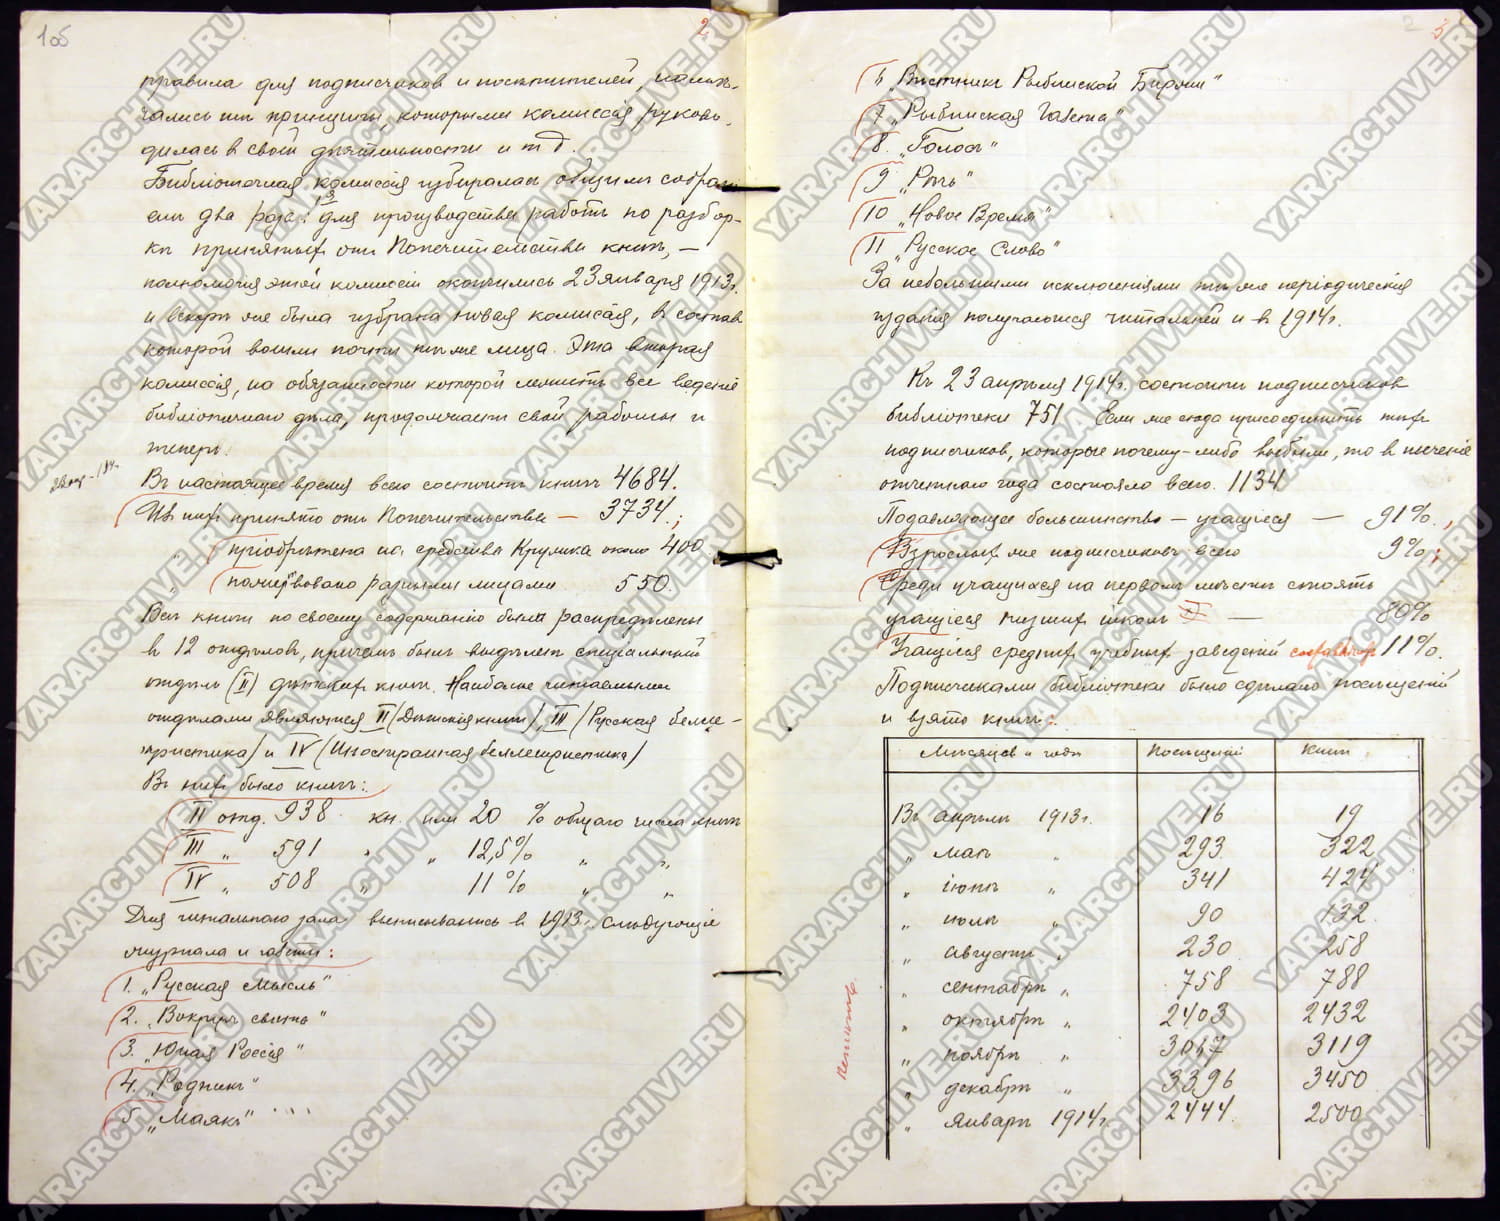 1об
2
правила для подписчиковъ и посѣтителей, излага-
лись тѣ принципы, которыми комиссія руково-
дилась въ своей дѣятельности и т д.
Библіотечная комиссія избиралась общимъ собрані-
емъ два раза: для производства работъ по разбор-
кѣ принятыхъ отъ Попечительства книгъ, —
полномочія этой комиссіи окончились 23 января 1913 г.
и вскорѣ же была избрана новая комиссія, въ составъ
которой вошли почти тѣ же лица. Эта вторая
комиссія, на обязанности которой лежитъ все веденіе
библіотечнаго дѣла, продолжаетъ свои работы и
теперь.
Въ настоящее время всего состоитъ книгъ 4684.
Изъ нихъ принято отъ Попечительства — 3734;
" пріобрѣтена на средства Крупика около 400
" пожертвовано разными лицами 550.
Всѣ книги по своему содержанію были распредѣлены
въ 12 отдѣловъ, причемъ былъ выдѣленъ спеціальный
отдѣлъ (II) дѣтскихъ книгъ. Наиболѣе читаемыми
отдѣлами являются II (Дѣтскія книги), III (Русская белле-
тристика) и IV (Иностранная беллетристика)
Въ нихъ было книгъ:
II отд. 938 кн. или 20 % общаго числа книгъ
III " 591 " " 12,5% " "
IV " 508 " 11 % " "
Для читальнаго зала выписывались въ 1913 г. слѣдующіе
журнала и газеты:
1. „Русская Мысль"
2. „Вокругъ свѣта"
3. „Юная Россія"
4. „Родникъ"
5 „Маякъ"
2
3
6 „Вѣстникъ Рыбинской Биржи"
7 „Рыбинская Газета"
8. „Голосъ"
9 „Рѣчь"
10 „Новое Время"
11 „Русское Слово"
За небольшими исключеніями тѣ же періодическія
изданія получаются читальней и въ 1914 г.
Къ 23 апрѣля 1914 г. состоитъ подписчиковъ
библіотеки 751 Если же сюда присоединить тѣхъ
подписчиковъ, которые почему-либо выбыли, то въ теченіе
отчетнаго года состояло всего. 1134
Подавляющее большинство — учащіеся — 91%.,
Взрослыхъ же подписчиковъ всего 9%;
Среди учащихся на первомъ мѣстѣ стоятъ
учащіеся низшихъ школъ — 80%
Учащіеся среднихъ учебныхъ заведеній 11%.
Подписчиками библіотеки было сдѣлано посѣщеній
и взято книгъ:
Мѣсяцы и годы Посѣщеній Книгъ
Въ апрѣлѣ 1913 г. 16 19
" маѣ " 293 322
" іюнѣ " 341 424
" іюлѣ " 90 132
" августѣ " 230 258
" сентябрѣ " 758 788
" октябрѣ " 2403 2432
" ноябрѣ " 3047 3119
" декабрѣ " 3396 3450
" январѣ 1914 г. 2444 2500
YARARCHIVE.RU